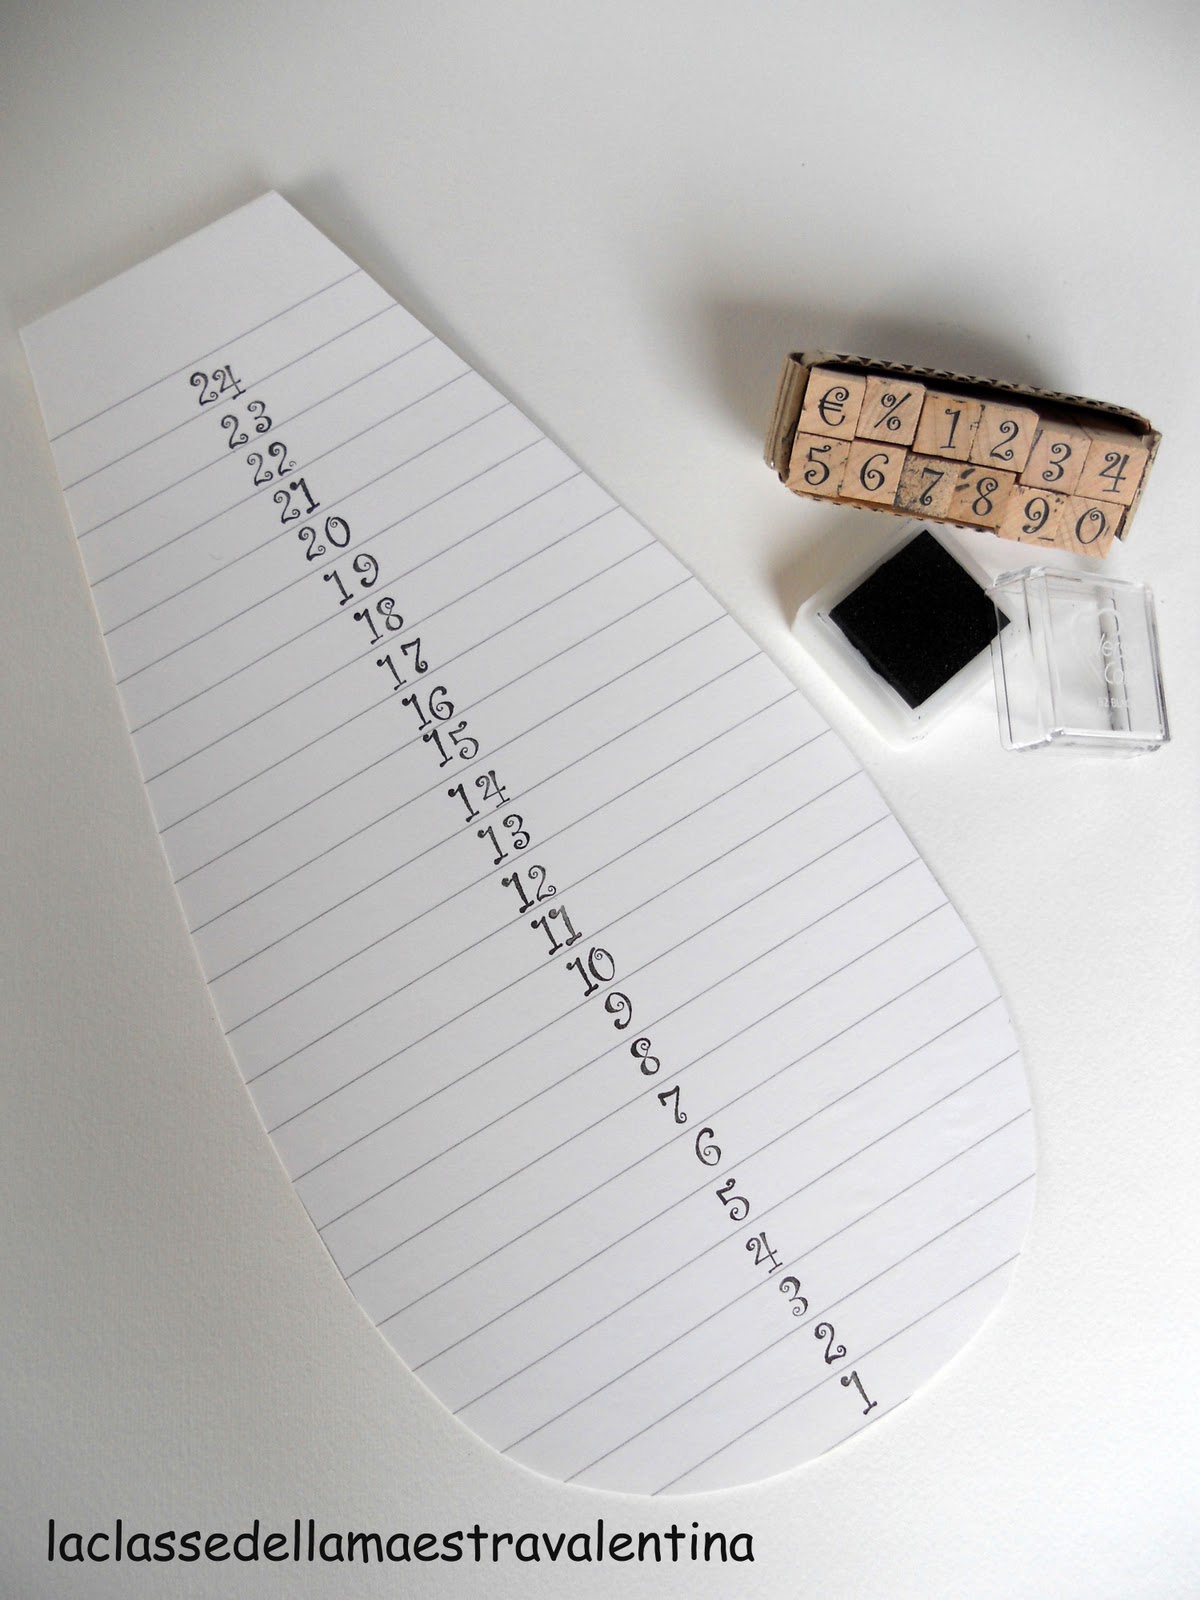 24
23
22
21
20
19
18
17
16
15
14
13
12
11
10
9
8
7
6
5
4
3
2
1
€ % 1 2 3 4
5 6 7 8 9 0
laclassedellamaestravalentina